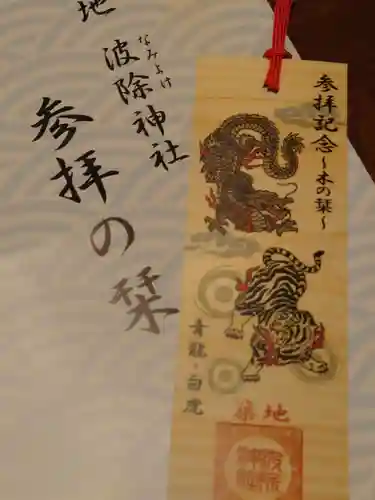 地
波除神社
なみよけ
参拝の栞
参拝記念～木の栞～
青龍・白虎
築地
波除神社